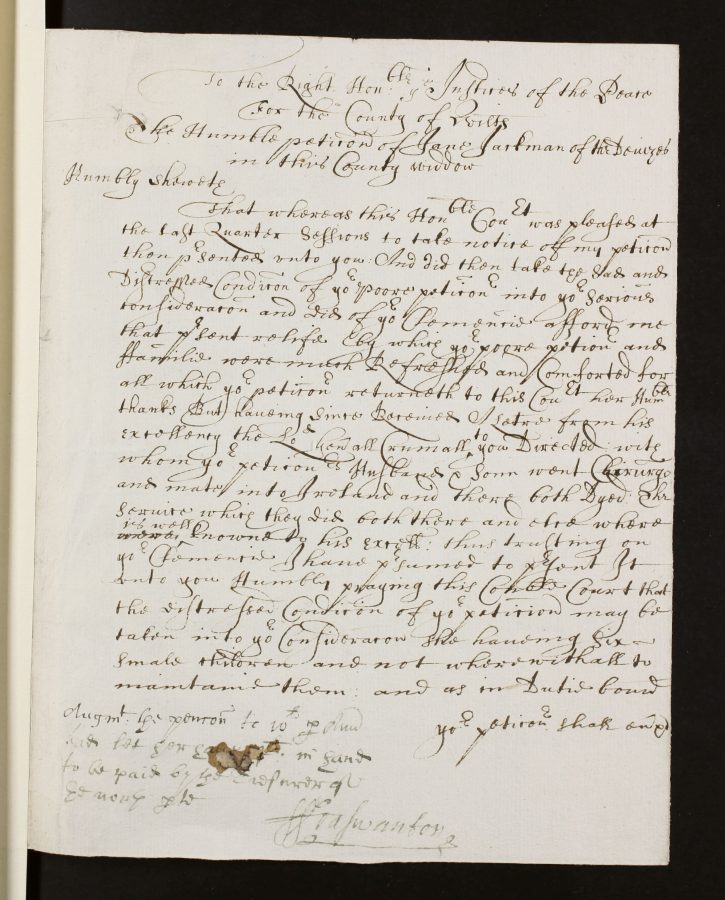 To the Right Hon:ble ye Justices of the Peace
For the County of Wilts
The Humble peticon of Jane Jackman of the Devizes
in this County widdow
Humbly sheweth
That whereas this Honble Court was pleased at
the last Quarter Sessions to take notice of my peticon
then psented unto you: And did then take the sad and
Distressed Condicon of yor poore peticonr into yor serious
consideracon and did of yor Clemencie afford me
that psent releife by which yor poore petionr and
Familie were much Refreshed and Comforted for
all which yor peticonr returneth to this Court her Humble
thanks But haveing since Received A letre from his
excellency the Lord henll Crumall to you Directed with
whom yor peticonrs Husband & sonn went Chirurgo
and mate into Ireland and there both Dyed. The
service which they did both there and else where
is well
knowne to his excell: thus trusting on
yor Clemencie I have psumed to psent It
unto you Humbly praying this Honble Court that
the distressed Condicon of yor peticion may be
taken into yor Consideracon she haveing six
smale children and not wherewithall to
maintaine them: and as in Dutie bound
yor peticonr shall ever pr
Augmt. the pencon to 10s p Ann
and let her have in hand
to be paid by the Tresurer of
the north pte
Fra Swanton